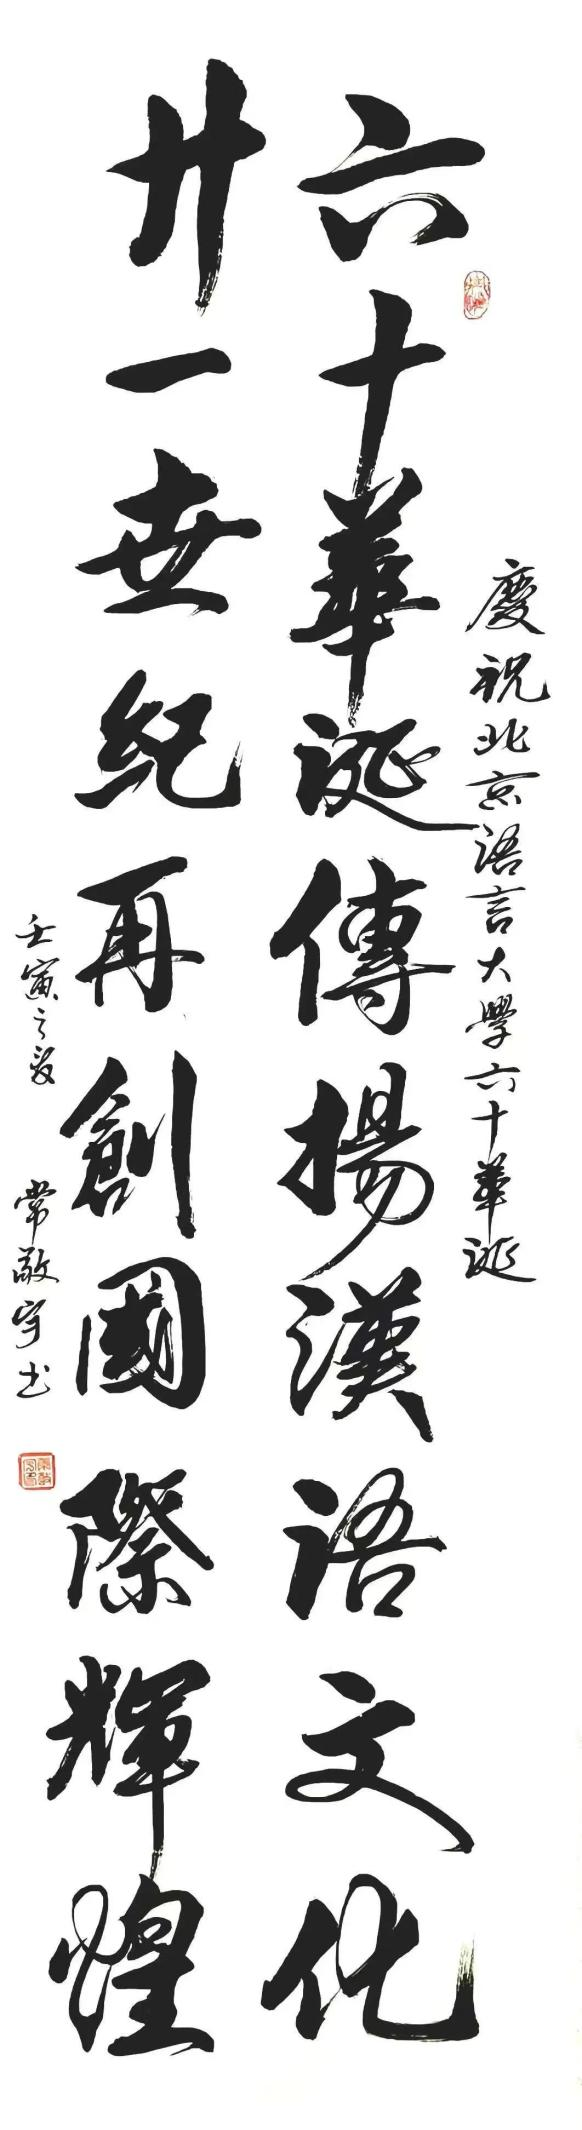 慶祝北京語言大學六十華誕
六十華誕傳揚漢語文化
廿一世紀再創國際輝煌
壬寅之夏
常敬宇书